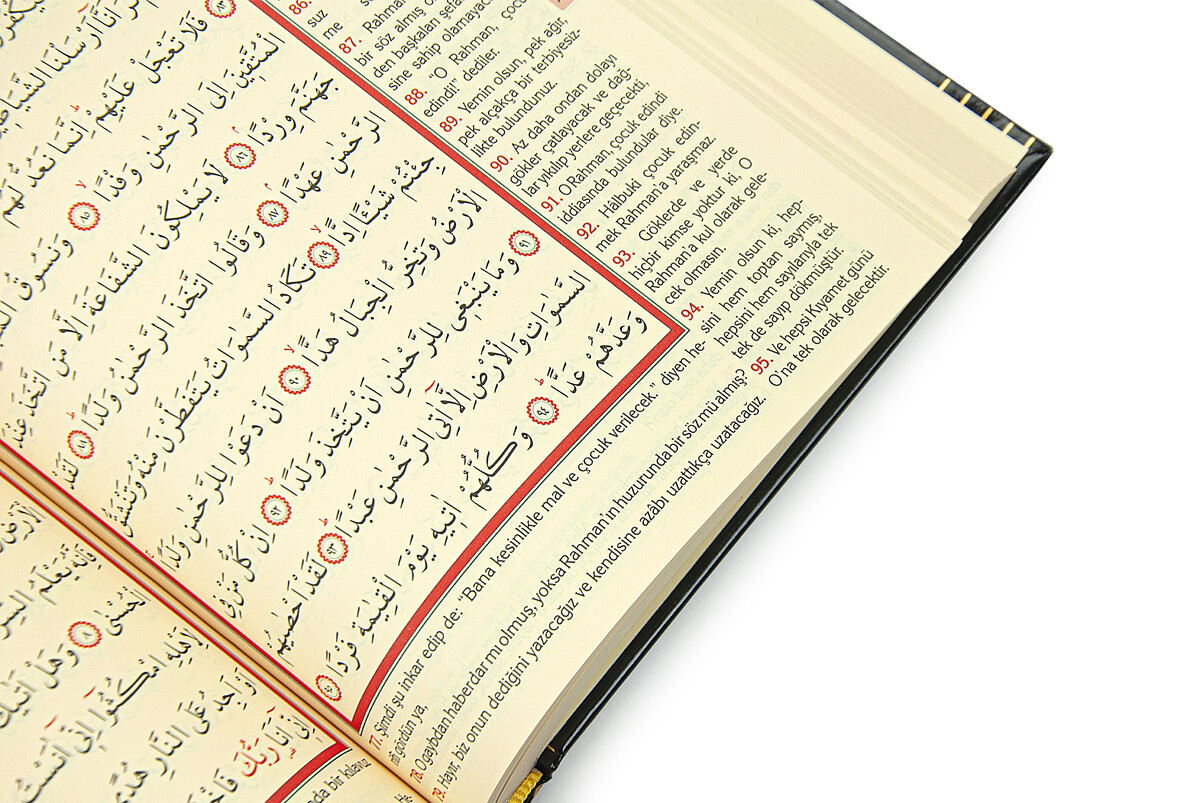 اَنَّٓا اَرْسَلْنَا
٨٣ فَلَا تَعْجَلْ عَلَيْهِمْ اِنَّمَا نَعُدُّ لَهُمْ
الْمُتَّقٖينَ اِلَى الرَّحْمٰنِ وَفْدًا ٨٥ وَنَسُوقُ
جَهَنَّمَ وِرْدًا ٨٦ لَا يَمْلِكُونَ الشَّفَاعَةَ اِلَّا مَنِ اتَّخَذَ عِنْدَ
الرَّحْمٰنِ عَهْدًا ٨٧ وَقَالُوا اتَّخَذَ الرَّحْمٰنُ وَلَدًا ٨٨ لَقَدْ
جِئْتُمْ شَيْـًٔا اِدًّا ٨٩ تَكَادُ السَّمٰوَاتُ يَتَفَطَّرْنَ مِنْهُ وَتَنْشَقُّ
الْاَرْضُ وَتَخِرُّ الْجِبَالُ هَدًّا ٩٠ اَنْ دَعَوْا لِلرَّحْمٰنِ وَلَدًا
٩١ وَمَا يَنْبَغٖي لِلرَّحْمٰنِ اَنْ يَتَّخِذَ وَلَدًا ٩٢ اِنْ كُلُّ مَنْ فِي
السَّمٰوَاتِ وَالْاَرْضِ اِلَّٓا اٰتِي الرَّحْمٰنِ عَبْدًا ٩٣ لَقَدْ اَحْصٰيهُمْ
وَعَدَّهُمْ عَدًّا ٩٤ وَكُلُّهُمْ اٰتٖيهِ يَوْمَ الْقِيٰمَةِ فَرْدًا ٩٥
86.
suz
me
87. Rahman
bir söz almış
den başkaları
sine sahip olamayac
88. "O Rahman, çocu
edindi!" dediler.
89. Yemin olsun, pek ağır,
pek alçakça bir terbiyesiz-
likte bulundunuz.
90. Az daha ondan dolayı
gökler çatlayacak ve dağ-
lar yıkılıp yerlere geçecekti,
91. O Rahman, çocuk edindi
iddiasında bulundular diye.
92. Hâlbuki çocuk edin-
mek Rahman'a yaraşmaz.
93. Göklerde ve yerde
hiçbir kimse yoktur ki, O
Rahman'a kul olarak gele-
cek olmasın.
94. Yemin olsun ki, hep-
sini hem toptan saymış,
hepsini hem sayılarıyla tek
tek de sayıp dökmüştür.
95. Ve hepsi Kıyamet günü
O'na tek olarak gelecektir.
77. Şimdi şu inkar edip de: "Bana kesinlikle mal ve çocuk verilecek." diyen he-
rifi gördün ya,
78. O gaybdan haberdar mı olmuş, yoksa Rahman'ın huzurunda bir söz mü almış?
79. Hayır, biz onun dediğini yazacağız ve kendisine azâbı uzattıkça uzatacağız.
فَاِنَّهُ يَعْلَمُ السِّرَّ
الْحُسْنٰى ٨ وَهَلْ اَتٰيكَ
لِاَهْلِهِ امْكُثُٓوا اِنّٖٓي اٰنَسْتُ
عَلَى النَّارِ هُدًى
اِنّٖٓي اَنَا۬ رَبُّكَ